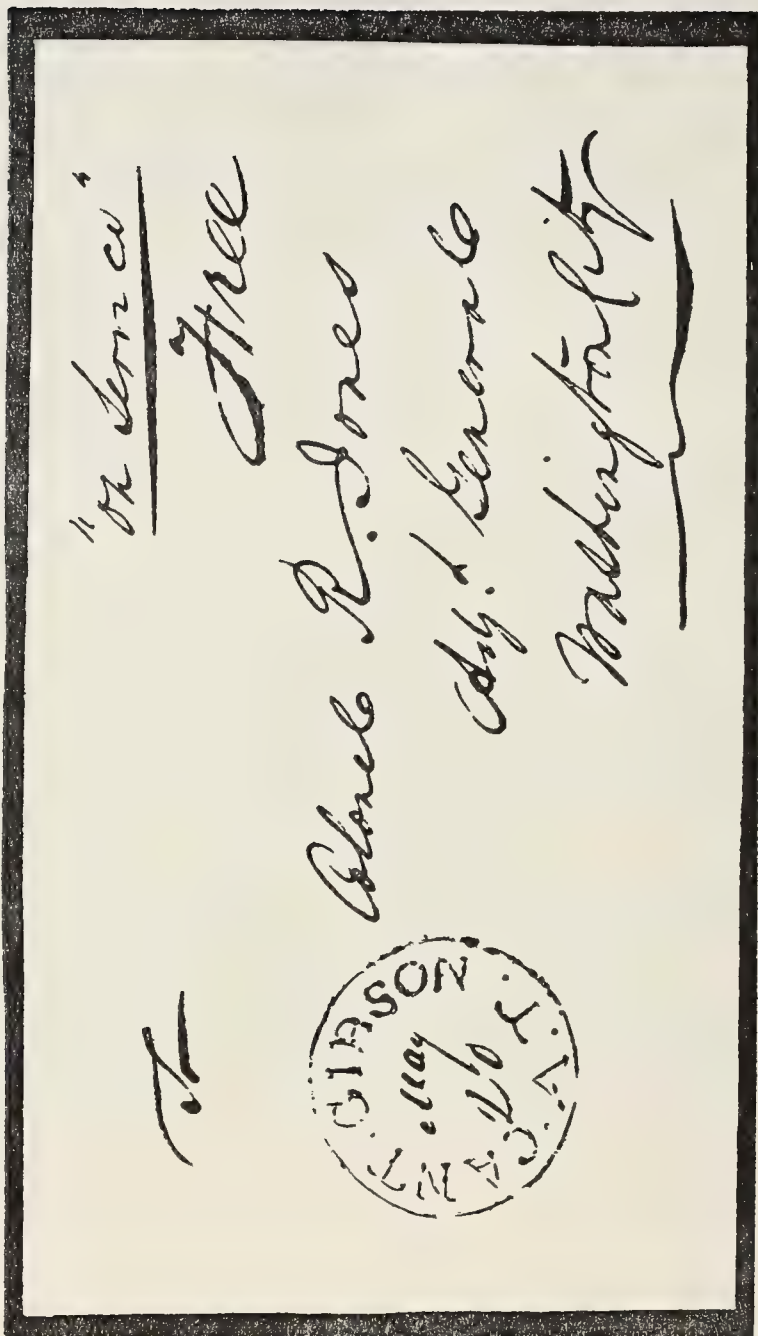 "on Service"
Free
To
Colonel R. Jones
Adj. t General
Washington City
CANT. GIBSON. A.T.
May 20